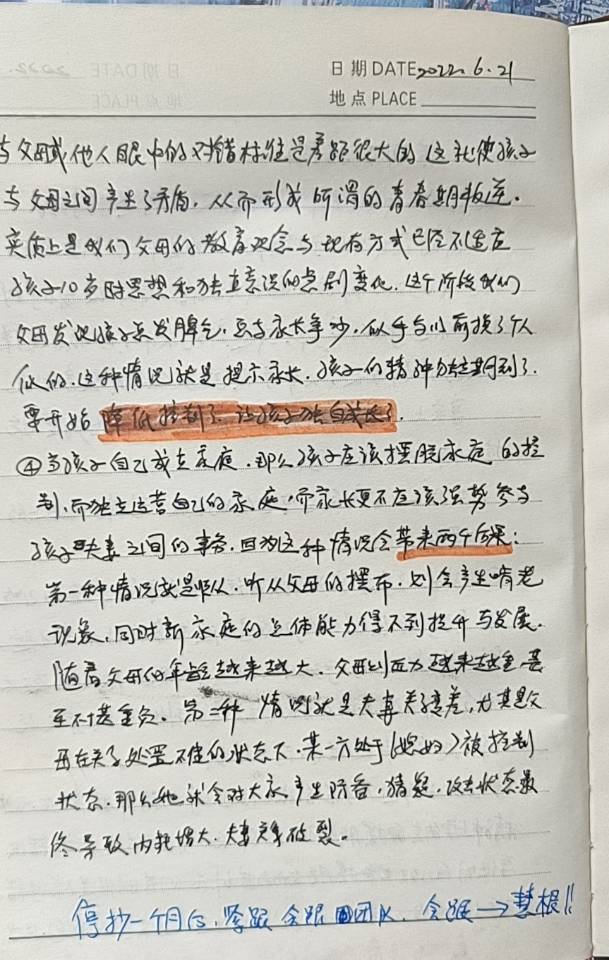 日期 DATE 2022. 6. 21
地点 PLACE
与父母或他人眼中的对错标准是差距很大的 这就使孩子
与父母之间产生了矛盾，从而形成所谓的青春期叛逆。
实质上是我们父母的教育观念与现有方式已经不适应
孩子10岁时思想和独立意识的急剧变化，这个阶段我们
父母发现孩子总发脾气，总与家长争吵，似乎与以前换了个人
似的，这种情况就是提示家长，孩子的精神独立期到了，
要开始降低控制了，让孩子独自成长了
④当孩子自己成立家庭，那么孩子应该摆脱家庭的控
制，而独立运营自己的家庭，而家长更不应该强势参与
孩子夫妻之间的事务，因为这种情况会带来两个后果：
第一种情况就是顺从，听从父母的摆布，则会产生啃老
现象，同时新家庭的总体能力得不到提升与发展，
随着父母的年龄越来越大，父母则压力越来越重甚
至不堪重负，第二种情况就是夫妻关系差，尤其是父
母在关系处理不佳的状态下，某一方处于（媳妇）被控制
状态，那么她就会对大家产生防备，猜疑，攻击状态最
终导致内耗增大，夫妻破裂。
停抄一个月后，紧跟 会跟 团队，会跟→慧根!!